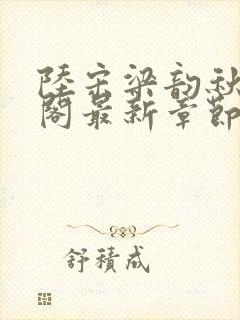 陸宗梁韵秋
閣最新章節
舒積成